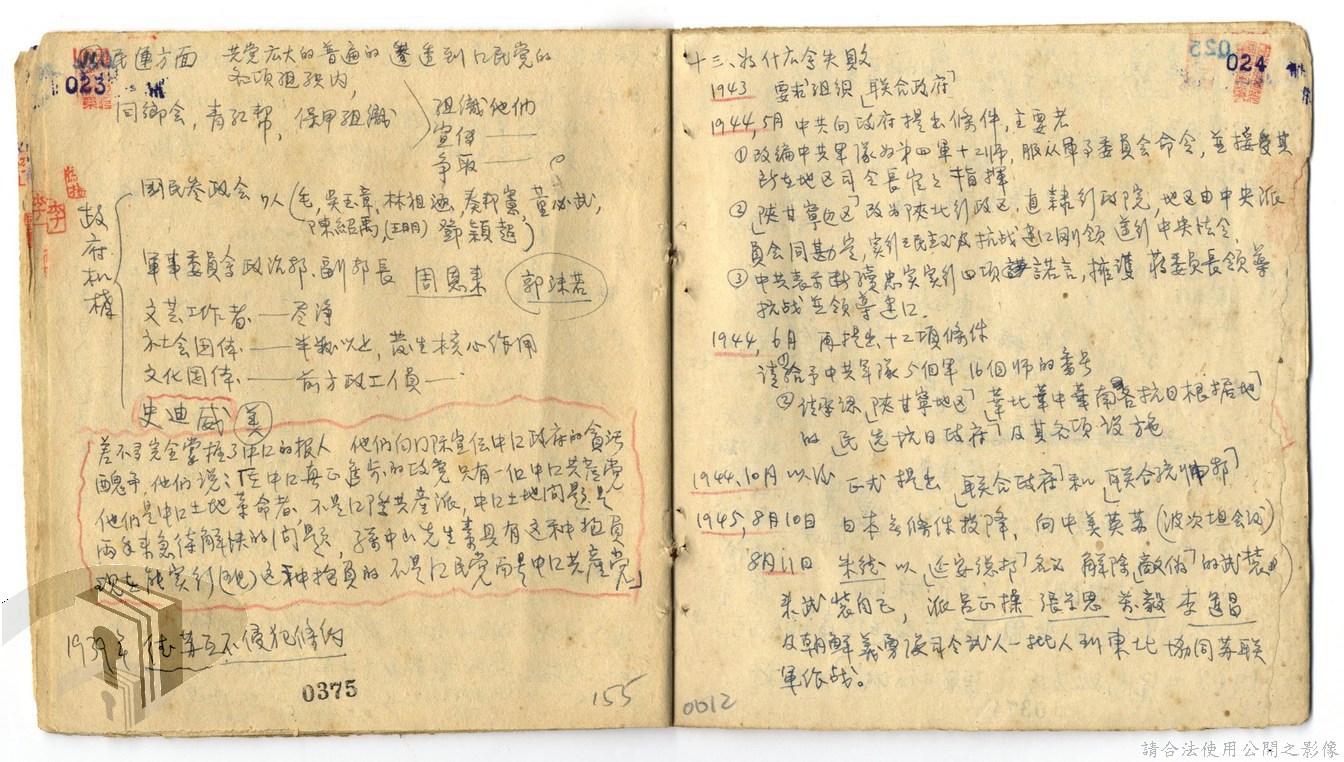 023
民運方面 共党広大的普遍的渗透到囗民党的
各項组织内,
同鄉会, 青红帮, 保甲组織
组織他们
宣传——
争取——
政府机構
国民参政会 7人(毛, 吴玉章, 林祖涵, 秦邦憲, 董必武,
陳紹禹,(王明) 鄧穎超)
軍事委員会政治部. 副部長 周恩来 郭沫若
文芸工作者——尽净
社会团体——半数以上, 發生核心作用
文化团体——前方政工員——
史迪威 美
差不多完全掌握了中囗的报人 他们向囗际宣伝中囗政府的貪污
醜予, 他们说:「在中囗真正進步的政党只有一個中囗共產党
他们是中囗土地革命者 不是囗際共産派, 中囗土地问题是
两千年来急待解决的问题, 孫中山先生素具有这种抱負
现在能实行(实现)这种抱負的不是囗民党而是中囗共產党」
1939年 德苏互不侵犯條约
0375
155
025
024
十三、为什庅会失敗
1943 要求组织「联合政府」
1944,5月 中共向政府提出條件, 主要者
①改編中共軍隊为第四軍十二师, 服从軍事委員会命令, 並接受其
所在地区司令長官之指揮
②「陝甘寧边区」改为陝北行政区. 直隸行政院, 地区由中央派
員会同勘定, 实行三民主义及抗战建囗刚領 遵行中央法令,
③中共表示継續忠实实行四項諾言, 擁護 蒋委員長領導
抗战並領導建囗.
1944,6月 再提出十二項條件
①请給予中共軍隊5個軍16個师的番号
②请承認「陝甘寧地区」「華北華中華南各抗日根据地」
的「民选抗日政府」及其各項設施
1944,10月以后 正式提出「联合政府」和「联合统帅部」
1945,8月10日 日本无條件投降, 向中美英苏(波次坦会议)
8月11日 朱德以「延安總部」名义 解除「敵伪」的武裝
来武装自己, 派吕正操 張学思 萬毅 李運昌
及朝鮮義勇隊司令武人一批人到東北 協同苏联
軍作战。
0612
請合法使用公開之影像